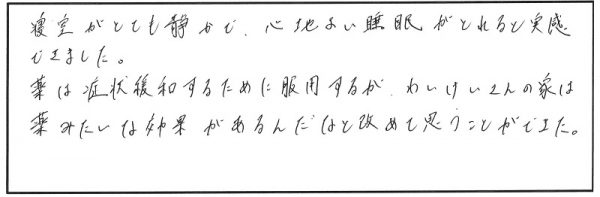 寝室がとても静かで、心地よい睡眠がとれると実感
できました。
薬は症状緩和するために服用するが、わいけいさんの家は
薬みたいな効果があるんだなと改めて思うことができた。